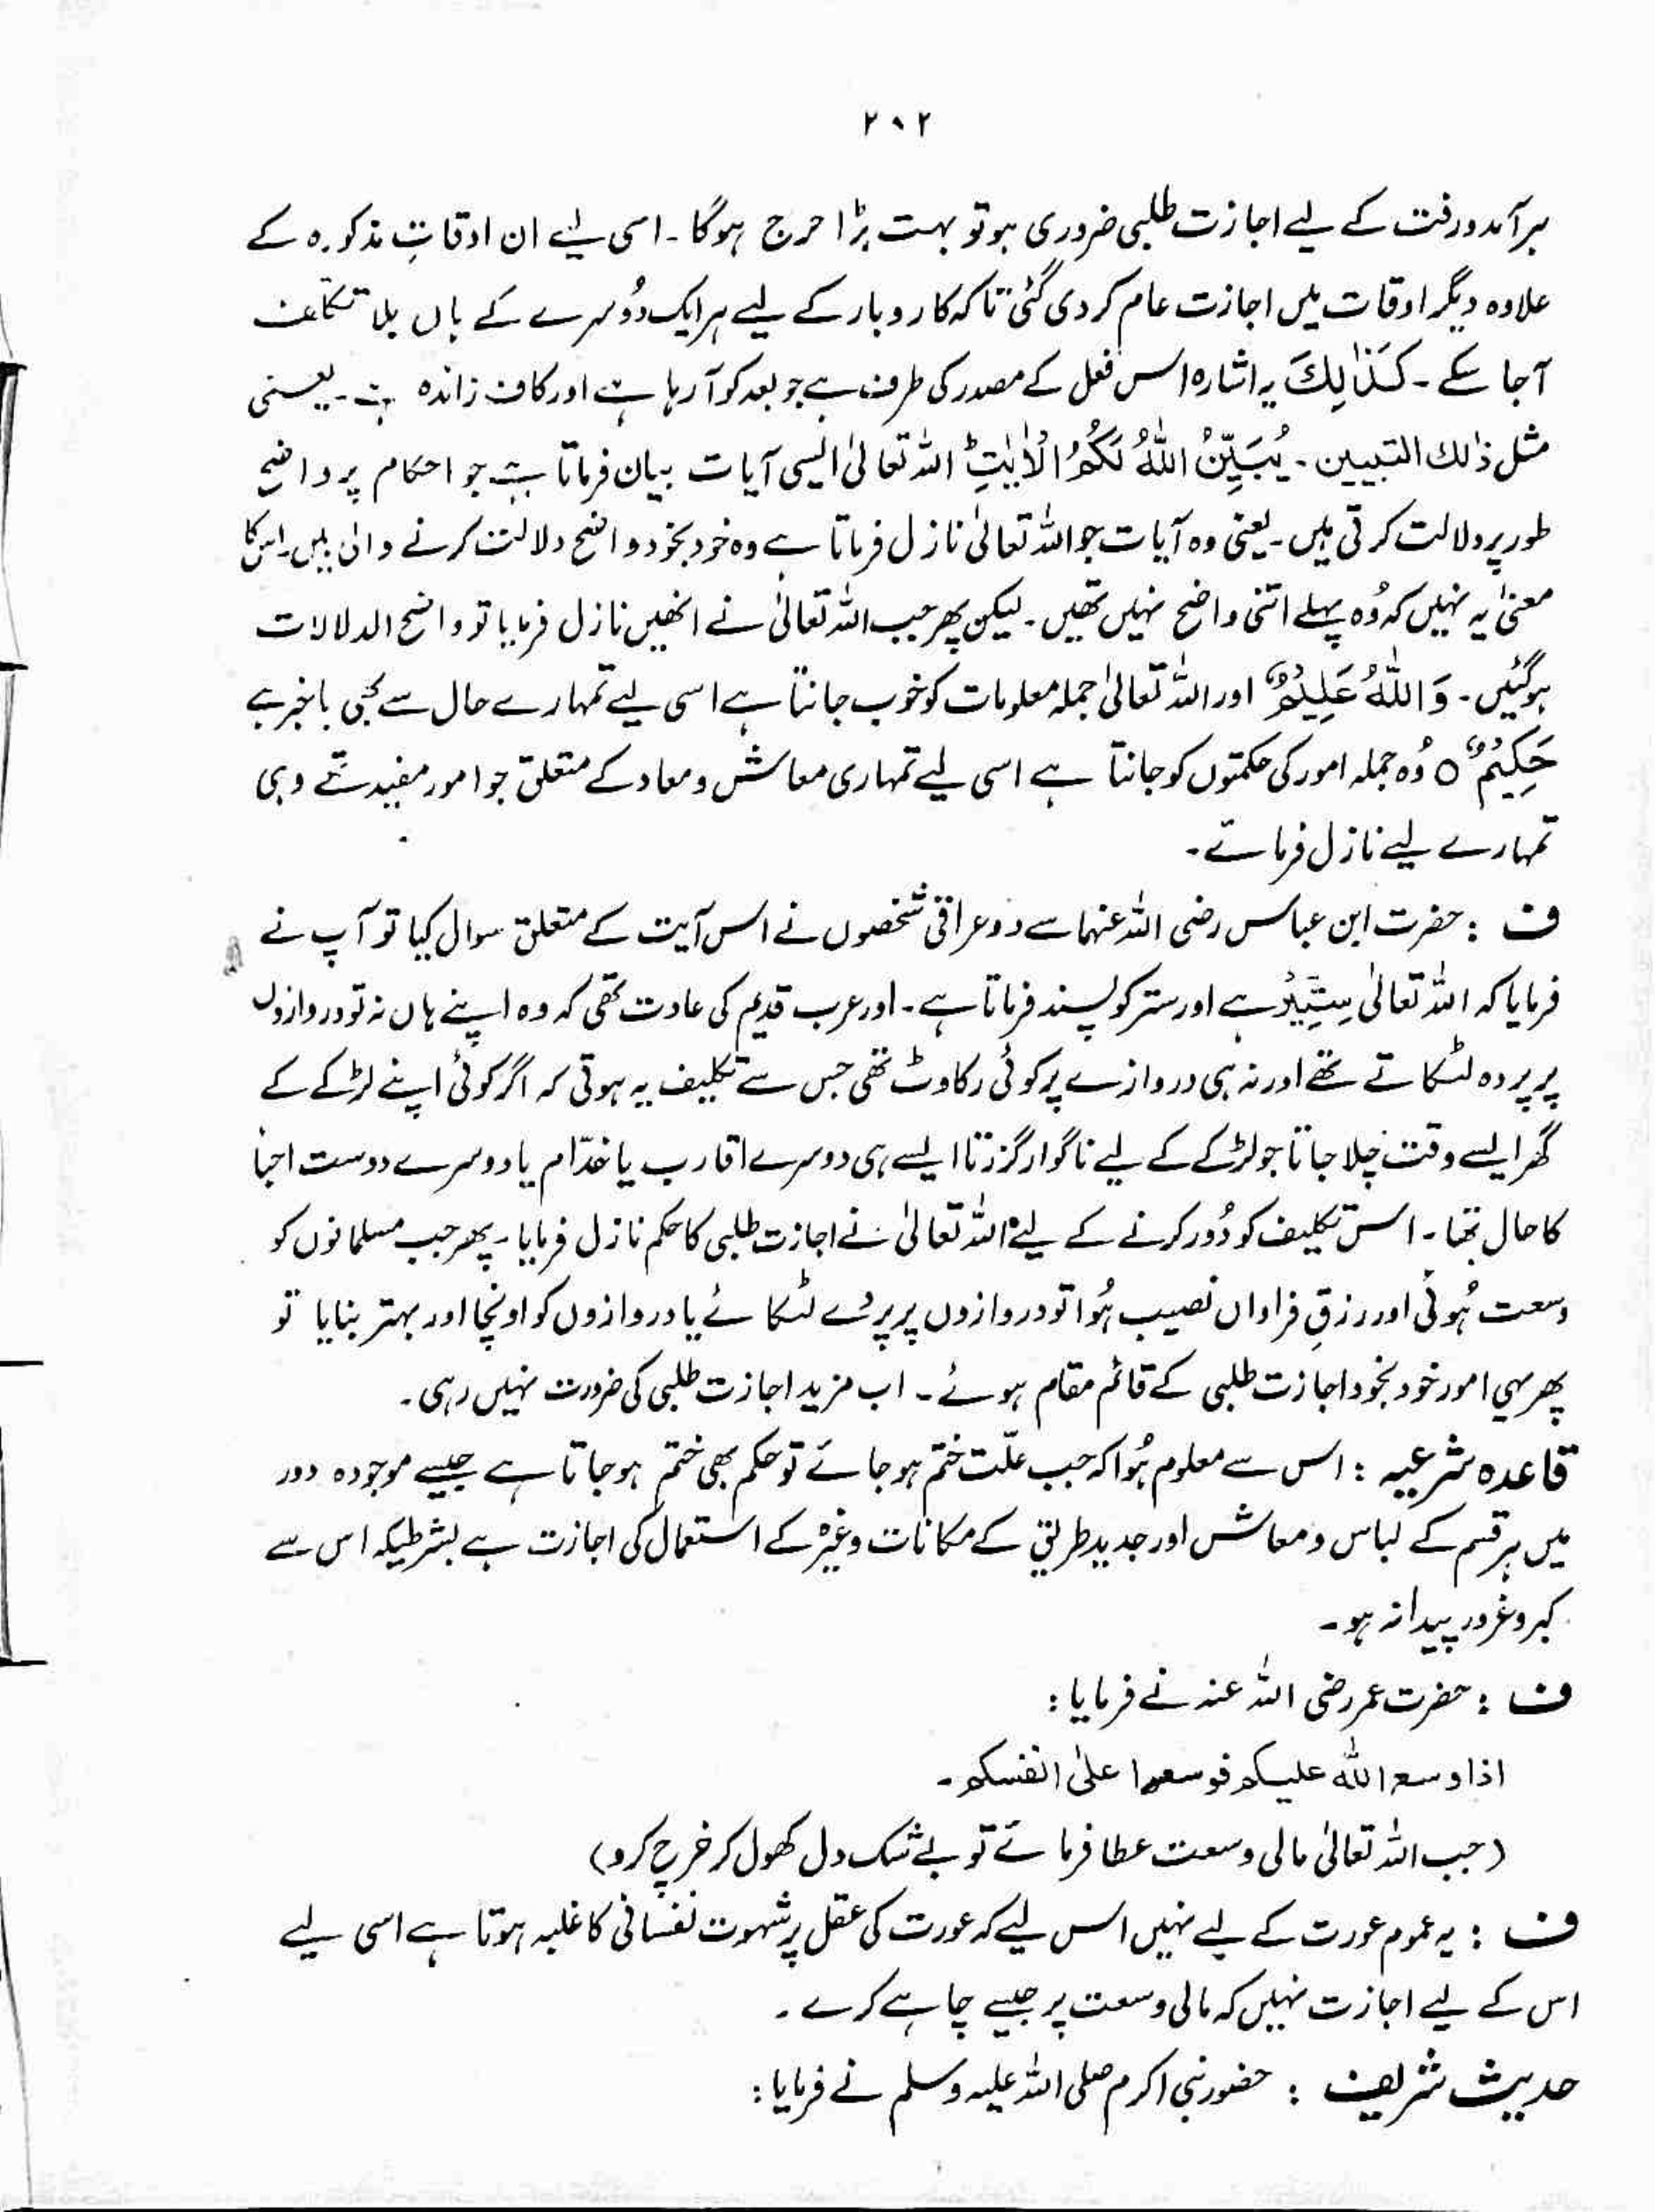 ۲۰۲
برآمدورفت کے لیے اجازت طلبی ضروری ہو تو بہت بڑا حرج ہوگا۔ اسی لئے ان اوقاتِ مذکورہ کے
علاوہ دیگر اوقات میں اجازت عام کر دی گئی تاکہ کاروبار کے لیے ہر ایک دُوسرے کے ہاں بلا تکلف
آجا سکے۔ كَذٰلِكَ یہ اشارہ اس فعل کے مصدر کی طرف ہے جو بعد کو آ رہا ہے اور کاف زائدہ ہے۔ یعنی
مثل ذٰلك التبيين۔ يُبَيِّنُ اللّٰهُ لَكُمُ الْاٰيٰتِ ؕ اللہ تعالیٰ ایسی آیات بیان فرماتا ہے جو احکام پر واضح
طور پر دلالت کرتی ہیں۔ یعنی وہ آیات جو اللہ تعالیٰ نازل فرماتا ہے وہ خود بخود واضح دلالت کرنے والی ہیں۔ اس کا
معنیٰ یہ نہیں کہ وُہ پہلے اتنی واضح نہیں تھیں۔ لیکن پھر جب اللہ تعالیٰ نے انھیں نازل فرمایا تو واضح الدلالات
ہوگئیں۔ وَاللّٰهُ عَلِيْمٌ اور اللہ تعالیٰ جملہ معلومات کو خوب جانتا ہے اسی لیے تمہارے حال سے بھی باخبر ہے
حَكِيْمٌ ۝ وُہ جملہ امور کی حکمتوں کو جانتا ہے اسی لیے تمہاری معاش و معاد کے متعلق جو امور مفید تھے وہی
تمہارے لیے نازل فرمائے۔
ف : حضرت ابن عباس رضی اللہ عنہما سے دو عراقی شخصوں نے اس آیت کے متعلق سوال کیا تو آپ نے
فرمایا کہ اللہ تعالیٰ سِتِّيْرٌ ہے اور ستر کو پسند فرماتا ہے۔ اور عرب قدیم کی عادت تھی کہ وہ اپنے ہاں نہ تو دروازوں
پر پردہ لٹکاتے تھے اور نہ ہی دروازے پر کوئی رکاوٹ تھی جس سے تکلیف یہ ہوتی کہ اگر کوئی اپنے لڑکے کے
گھر ایسے وقت چلا جاتا جو لڑکے کے لیے ناگوار گزرتا ایسے ہی دوسرے اقارب یا خدّام یا دوسرے دوست احبا
کا حال تھا۔ اس تکلیف کو دُور کرنے کے لیے اللہ تعالیٰ نے اجازت طلبی کا حکم نازل فرمایا۔ پھر جب مسلمانوں کو
وسعت ہُوئی اور رزقِ فراواں نصیب ہُوا تو دروازوں پر پردے لٹکائے یا دروازوں کو اونچا اور بہتر بنایا تو
پھر یہی امور خود بخود اجازت طلبی کے قائم مقام ہوئے۔ اب مزید اجازت طلبی کی ضرورت نہیں رہی۔
قاعدہ شرعیہ : اس سے معلوم ہُوا کہ جب علّت ختم ہو جائے تو حکم بھی ختم ہو جاتا ہے جیسے موجودہ دور
میں ہر قسم کے لباس و معاش اور جدید طریق کے مکانات وغیرہ کے استعمال کی اجازت ہے بشرطیکہ اس سے
کبر و غرور پیدا نہ ہو۔
ف : حضرت عمر رضی اللہ عنہ نے فرمایا :
اذا وسع الله عليكم فوسعوا على انفسكم۔
(جب اللہ تعالیٰ مالی وسعت عطا فرمائے تو بے شک دل کھول کر خرچ کرو)
ف : یہ عموم عورت کے لیے نہیں اس لیے کہ عورت کی عقل پر شہوت نفسانی کا غلبہ ہوتا ہے اسی لیے
اس کے لیے اجازت نہیں کہ مالی وسعت پر جیسے چاہے کرے۔
حدیث شریف : حضور نبی اکرم صلی اللہ علیہ وسلم نے فرمایا :